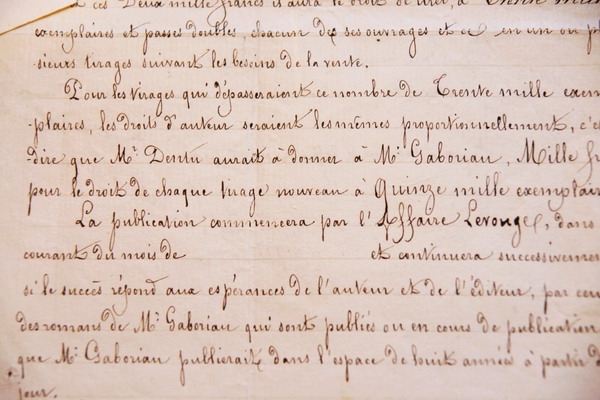 ces Deux mille francs il aura le droit de tirer, à Trente mille
exemplaires et passes doubles, chacun de ses ouvrages et ce en un ou plu
sieurs tirages suivant les besoins de la vente.
Pour les tirages qui dépasseraient ce nombre de Trente mille exem
-plaires, les droits d'auteur seraient les mêmes proportionnellement, c'es
-dire que Mr Dentu aurait à donner à Mr Gaboriau, Mille fr
pour le droit de chaque tirage nouveau à Quinze mille exemplair
La publication commencera par l'Affaire Lerouge, dans
courant du mois de et continuera successiveme
si le succès répond aux espérances de l'auteur et de l'éditeur, par ceu
des romans de Mr Gaboriau qui sont publiés ou en cours de publication
que Mr Gaboriau publierait dans l'espace de huit années à partir d
jour.